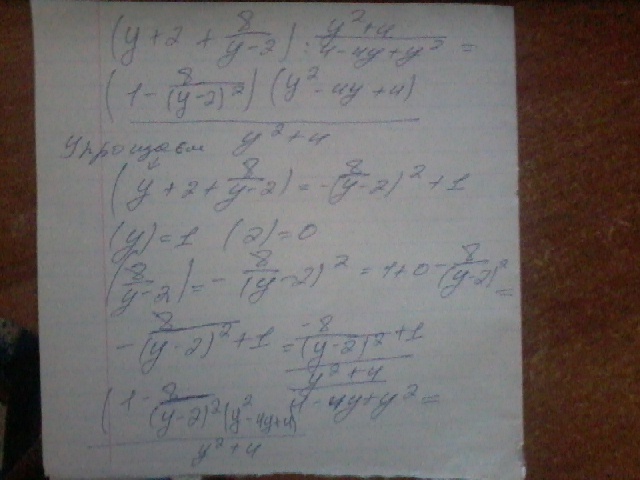 (y+2+8/(y-2)) : (y²+4)/(4-4y+y²) =
((1-8/(y-2)²)(y²-4y+4))/(y²+4)
Упрощаем
(y+2+8/(y-2)) = -8/(y-2)²+1
(y)=1 (2)=0
(8/(y-2)) = -8/(y-2)² = 1+0-8/(y-2)² =
-8/(y-2)²+1 = (-8/(y-2)²+1)/((y²+4)/(4-4y+y²)) =
((1-8/(y-2)²)(y²-4y+4))/(y²+4)